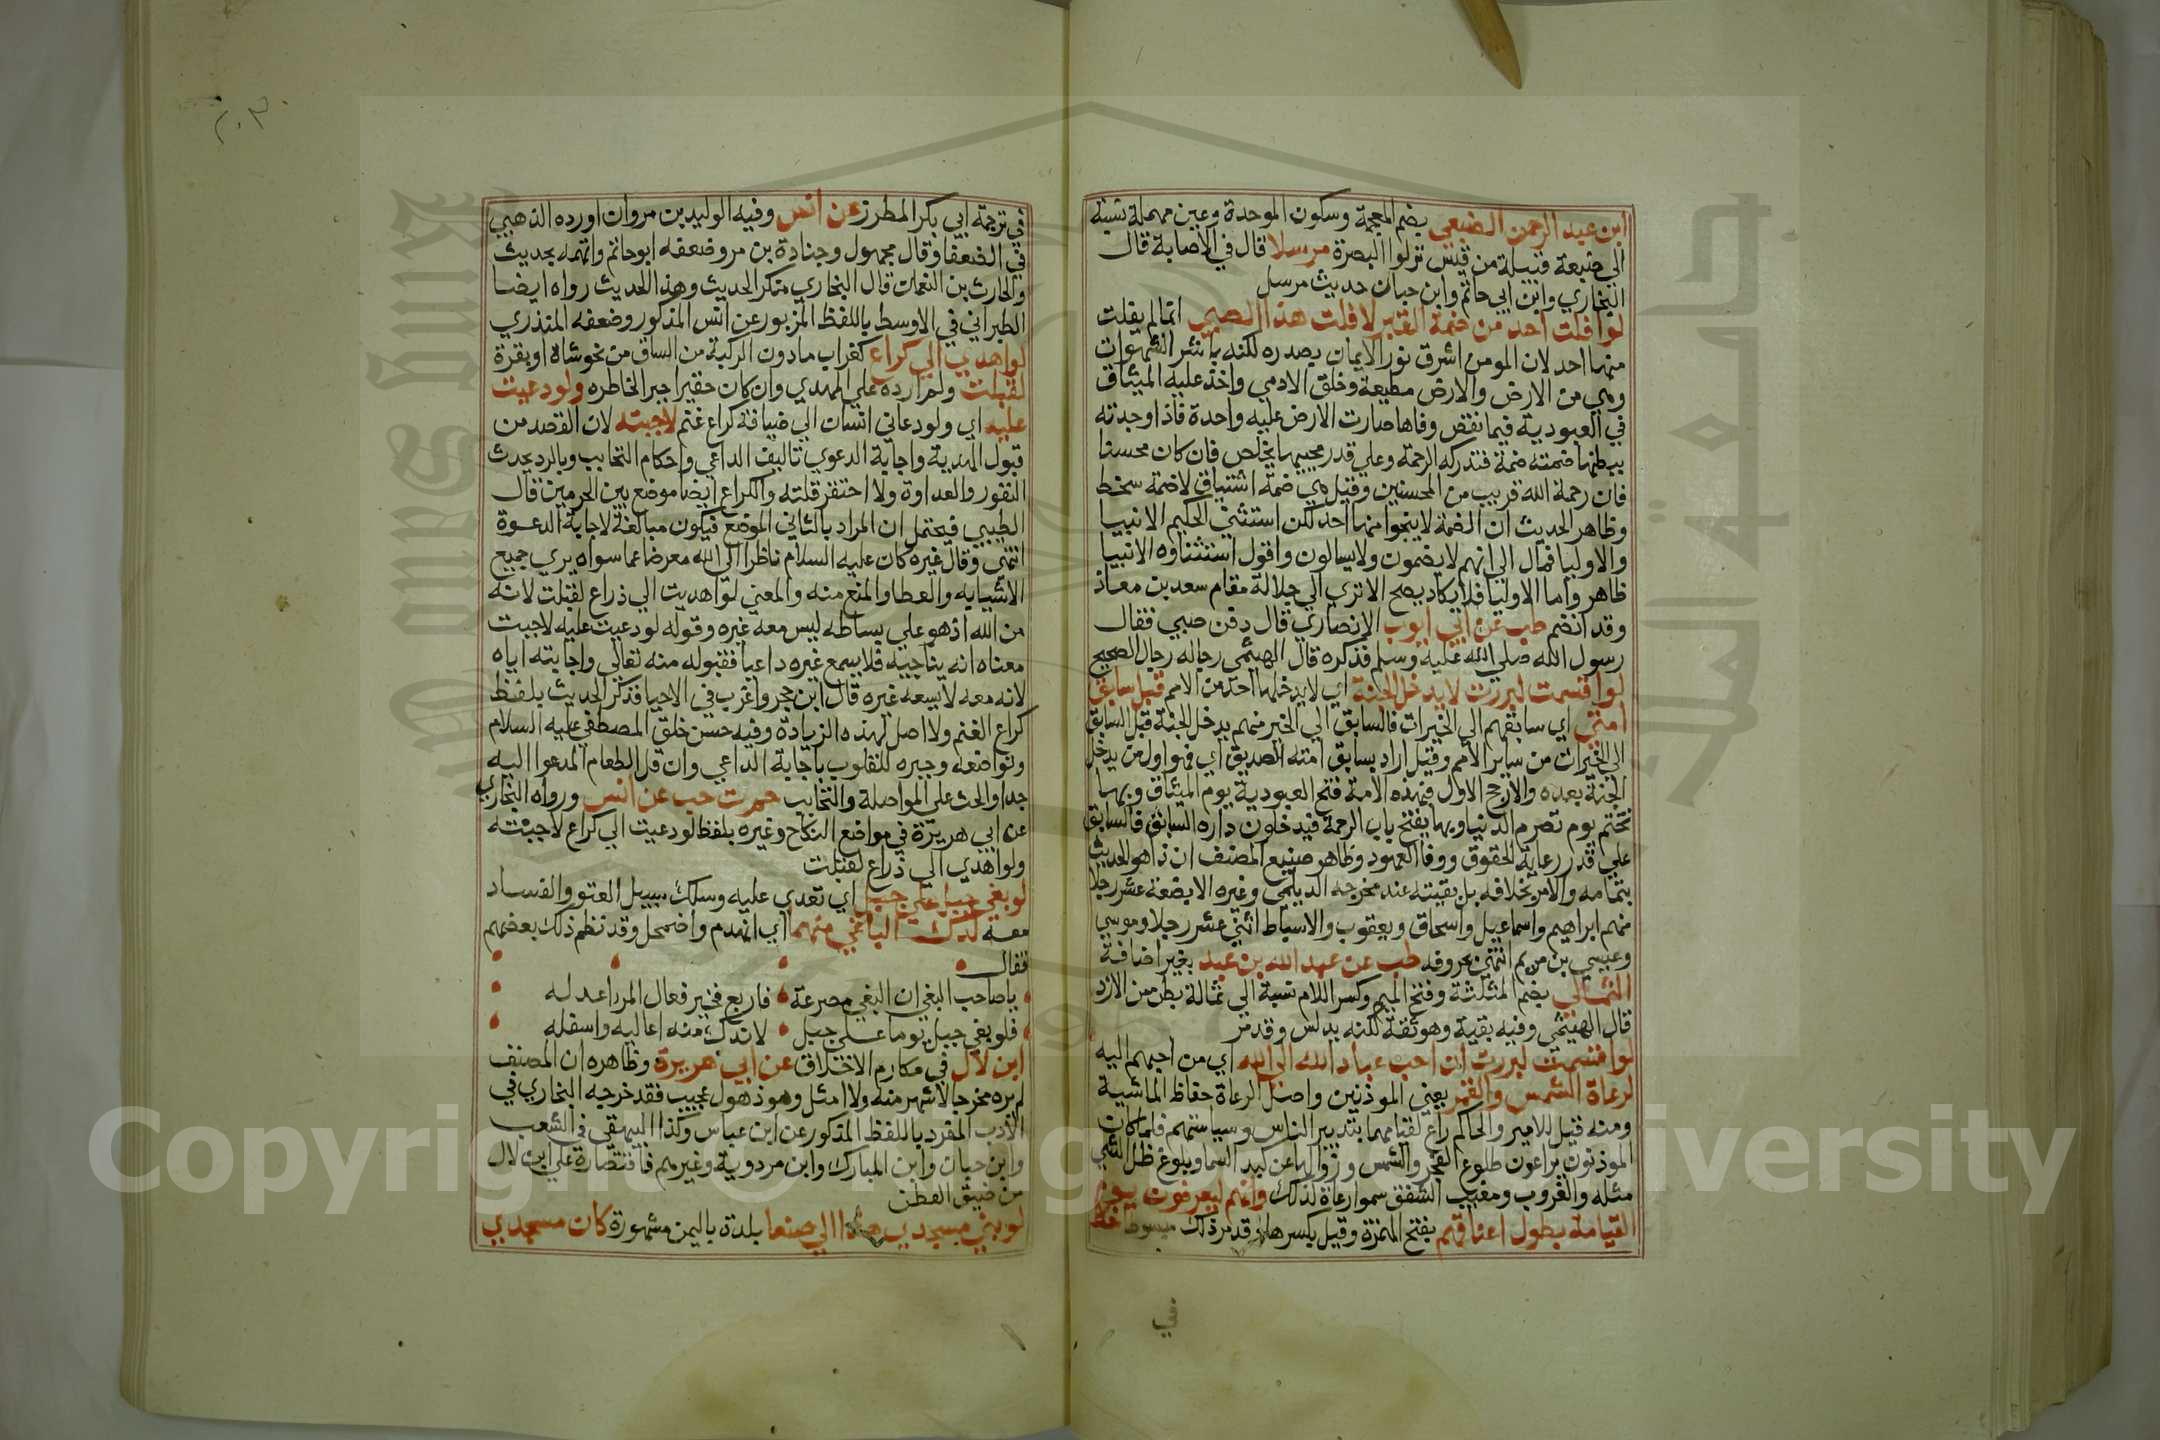 ابن عبد الرحمن الضبعي بضم المعجمة وسكون الموحدة وعين مهملة نسبة
الي ضبيعة قبيلة من قيس نزلوا البصرة مرسلا قال في الاصابة قال
البخاري وابن ابي حاتم وابن حبان حديث مرسل
لو افلت احد من ضمة القبر لافلت هذا الصبي انما لم يفلت
منها احد لان المومن اشرق نور الايمان بصدره لكنه باشر الشهوات
وهي من الارض والارض مطيعة وخلق الادمي واخذ عليه الميثاق
في العبودية فيما نقض وفاها صارت الارض عليه واحدة فاذا وجدته
ببطنها ضمته ضمة فتدركه الرحمة وعلي قدر مجيبها يخلص فان كان محسنا
فان رحمة الله قريب من المحسنين وقيل هي ضمة اشتياق لا ضمة سخط
وظاهر الحديث ان الضمة لا ينجوا منها احد لكن استثني الحكيم الانبيا
والاوليا فمال الي انهم لا يضمون ولا يسالون واقول استثناوه الانبيا
ظاهر واما الاوليا فلا يكاد يصح الا تري الي جلالة مقام سعد بن معاذ
وقد انضم طب عن ابي ايوب الانصاري قال دفن صبي فقال
رسول الله صلي الله عليه وسلم فذكره قال الهيثمي رجاله رجال الصحيح
لو اقسمت لبررت لا يدخل الجنة اي لا يدخلها احد من الامم قبل سابق
امتي اي سابقهم الي الخيرات فالسابق الي الخير منهم يدخل الجنة قبل السابق
الي الخيرات من ساير الامم وقيل اراد بسابق امته الصديق اي فهو اول من يدخل
الجنة بعده والارجح الاول فبهذه الامة فتح العبودية يوم الميثاق وبها
تختم يوم تصرم الدنيا وبها يفتح باب الرحمة فيدخلون داره السابق فالسابق
علي قدر رعاية الحقوق ووفا العهود وظاهر صنيع المصنف ان ذا هو الحديث
بتمامه والامر بخلافه بل بقيته عند مخرجه الديلمي وغيره الا بضعة عشر رجلا
منهم ابراهيم واسماعيل واسحاق ويعقوب والاسباط اثني عشر رجلا وموسي
وعيسي بن مريم انتهي بحروفه طب عن عبد الله بن عبد بغير اضافة
الثمالي بضم المثلثة وفتح الميم وكسر اللام نسبة الي ثمالة بطن من الازد
قال الهيثمي وفيه بقية وهو ثقة لكنه يدلس وقد مر
لو اقسمت لبررت ان احب عباد الله الي الله اي من احبهم اليه
لرعاة الشمس والقمر يعني الموذنين واصل الرعاة حفاظ الماشية
ومنه قيل للامير والحاكم راع لقيامهما بتدبير الناس وسياستهم فلما كان
الموذنون يراعون طلوع الفجر والشمس وزوالها عن كبد السما وبلوغ ظل الشي
مثله والغروب ومغيب الشفق سموا رعاة لذلك وانهم ليعرفون يوم
القيامة بطول اعناقهم بفتح الهمزة وقيل بكسرها وقد مر ذلك مبسوطا خط
في
في ترجمة ابي بكر المطرز عن انس وفيه الوليد بن مروان اورده الذهبي
في الضعفا وقال مجهول وجنادة بن مرو ضعفه ابو حاتم واتهمه بحديث
والحارث بن النعمان قال البخاري منكر الحديث وهذا الحديث رواه ايضا
الطبراني في الاوسط باللفظ المزبور عن انس المذكور وضعفه المنذري
لو اهدي الي كراع كغراب ما دون الركبة من الساق من نحو شاة او بقرة
لقبلت ولم ارده علي المهدي وان كان حقيرا جبرا لخاطره ولو دعيت
عليه اي ولو دعاني انسان الي ضيافة كراع غنم لاجبته لان القصد من
قبول الهدية واجابة الدعوي تاليف الداعي واحكام التحابب وبالرد يحدث
النفور والعداوة ولا احتقر قلته والكراع ايضا موضع بين الحرمين قال
الطيبي فيحتمل ان المراد بالثاني الموضع فيكون مبالغة لاجابة الدعوة
انتهي وقال غيره كان عليه السلام ناظرا الي الله معرضا عما سواه يري جميع
الاشيا به والعطا والمنع منه والمعني لو اهديت الي ذراع لقبلت لانه
من الله اذ هو علي بساطه ليس معه غيره وقوله لو دعيت عليه لاجبت
معناه انه يناجيه فلا يسمع غيره داعيا فقبوله منه تعالي واجابته اياه
لانه معه لا يسعه غيره قال ابن حجر واغرب في الاحيا فذكر الحديث بلفظ
كراع الغنم ولا اصل لهذه الزيادة وفيه حسن خلق المصطفي عليه السلام
وتواضعه وجبره للقلوب باجابة الداعي وان قل الطعام المدعوا اليه
جدا والحث علي المواصلة والتحابب حم ت حب عن انس ورواه البخاري
عن ابي هريرة في مواضع النكاح وغيره بلفظ لو دعيت الي كراع لاجبته
ولو اهدي الي ذراع لقبلت
لو بغي جبل علي جبل اي تعدي عليه وسلك سبيل العتو والفساد
معه لدك الباغي منهما اي انهدم واضمحل وقد نظم ذلك بعضهم
فقال
يا صاحب البغي ان البغي مصرعة فاربع فخير فعال المرء اعدله
فلو بغي جبل يوما علي جبل لاندك منه اعاليه واسفله
ابن لال في مكارم الاخلاق عن ابي هريرة وظاهره ان المصنف
لم يره مخرجا لاشهر منه ولا امثل وهو ذهول عجيب فقد خرجه البخاري في
الادب المفرد باللفظ المذكور عن ابن عباس وكذا البيهقي في الشعب
وابن حبان وابن المبارك وابن مردوية وغيرهم فاقتصاره علي ابن لال
من ضيق العطن
لو بني مسجدي هذا الي صنعا بلدة باليمن مشهورة كان مسجدي
Copyright © King Saud University